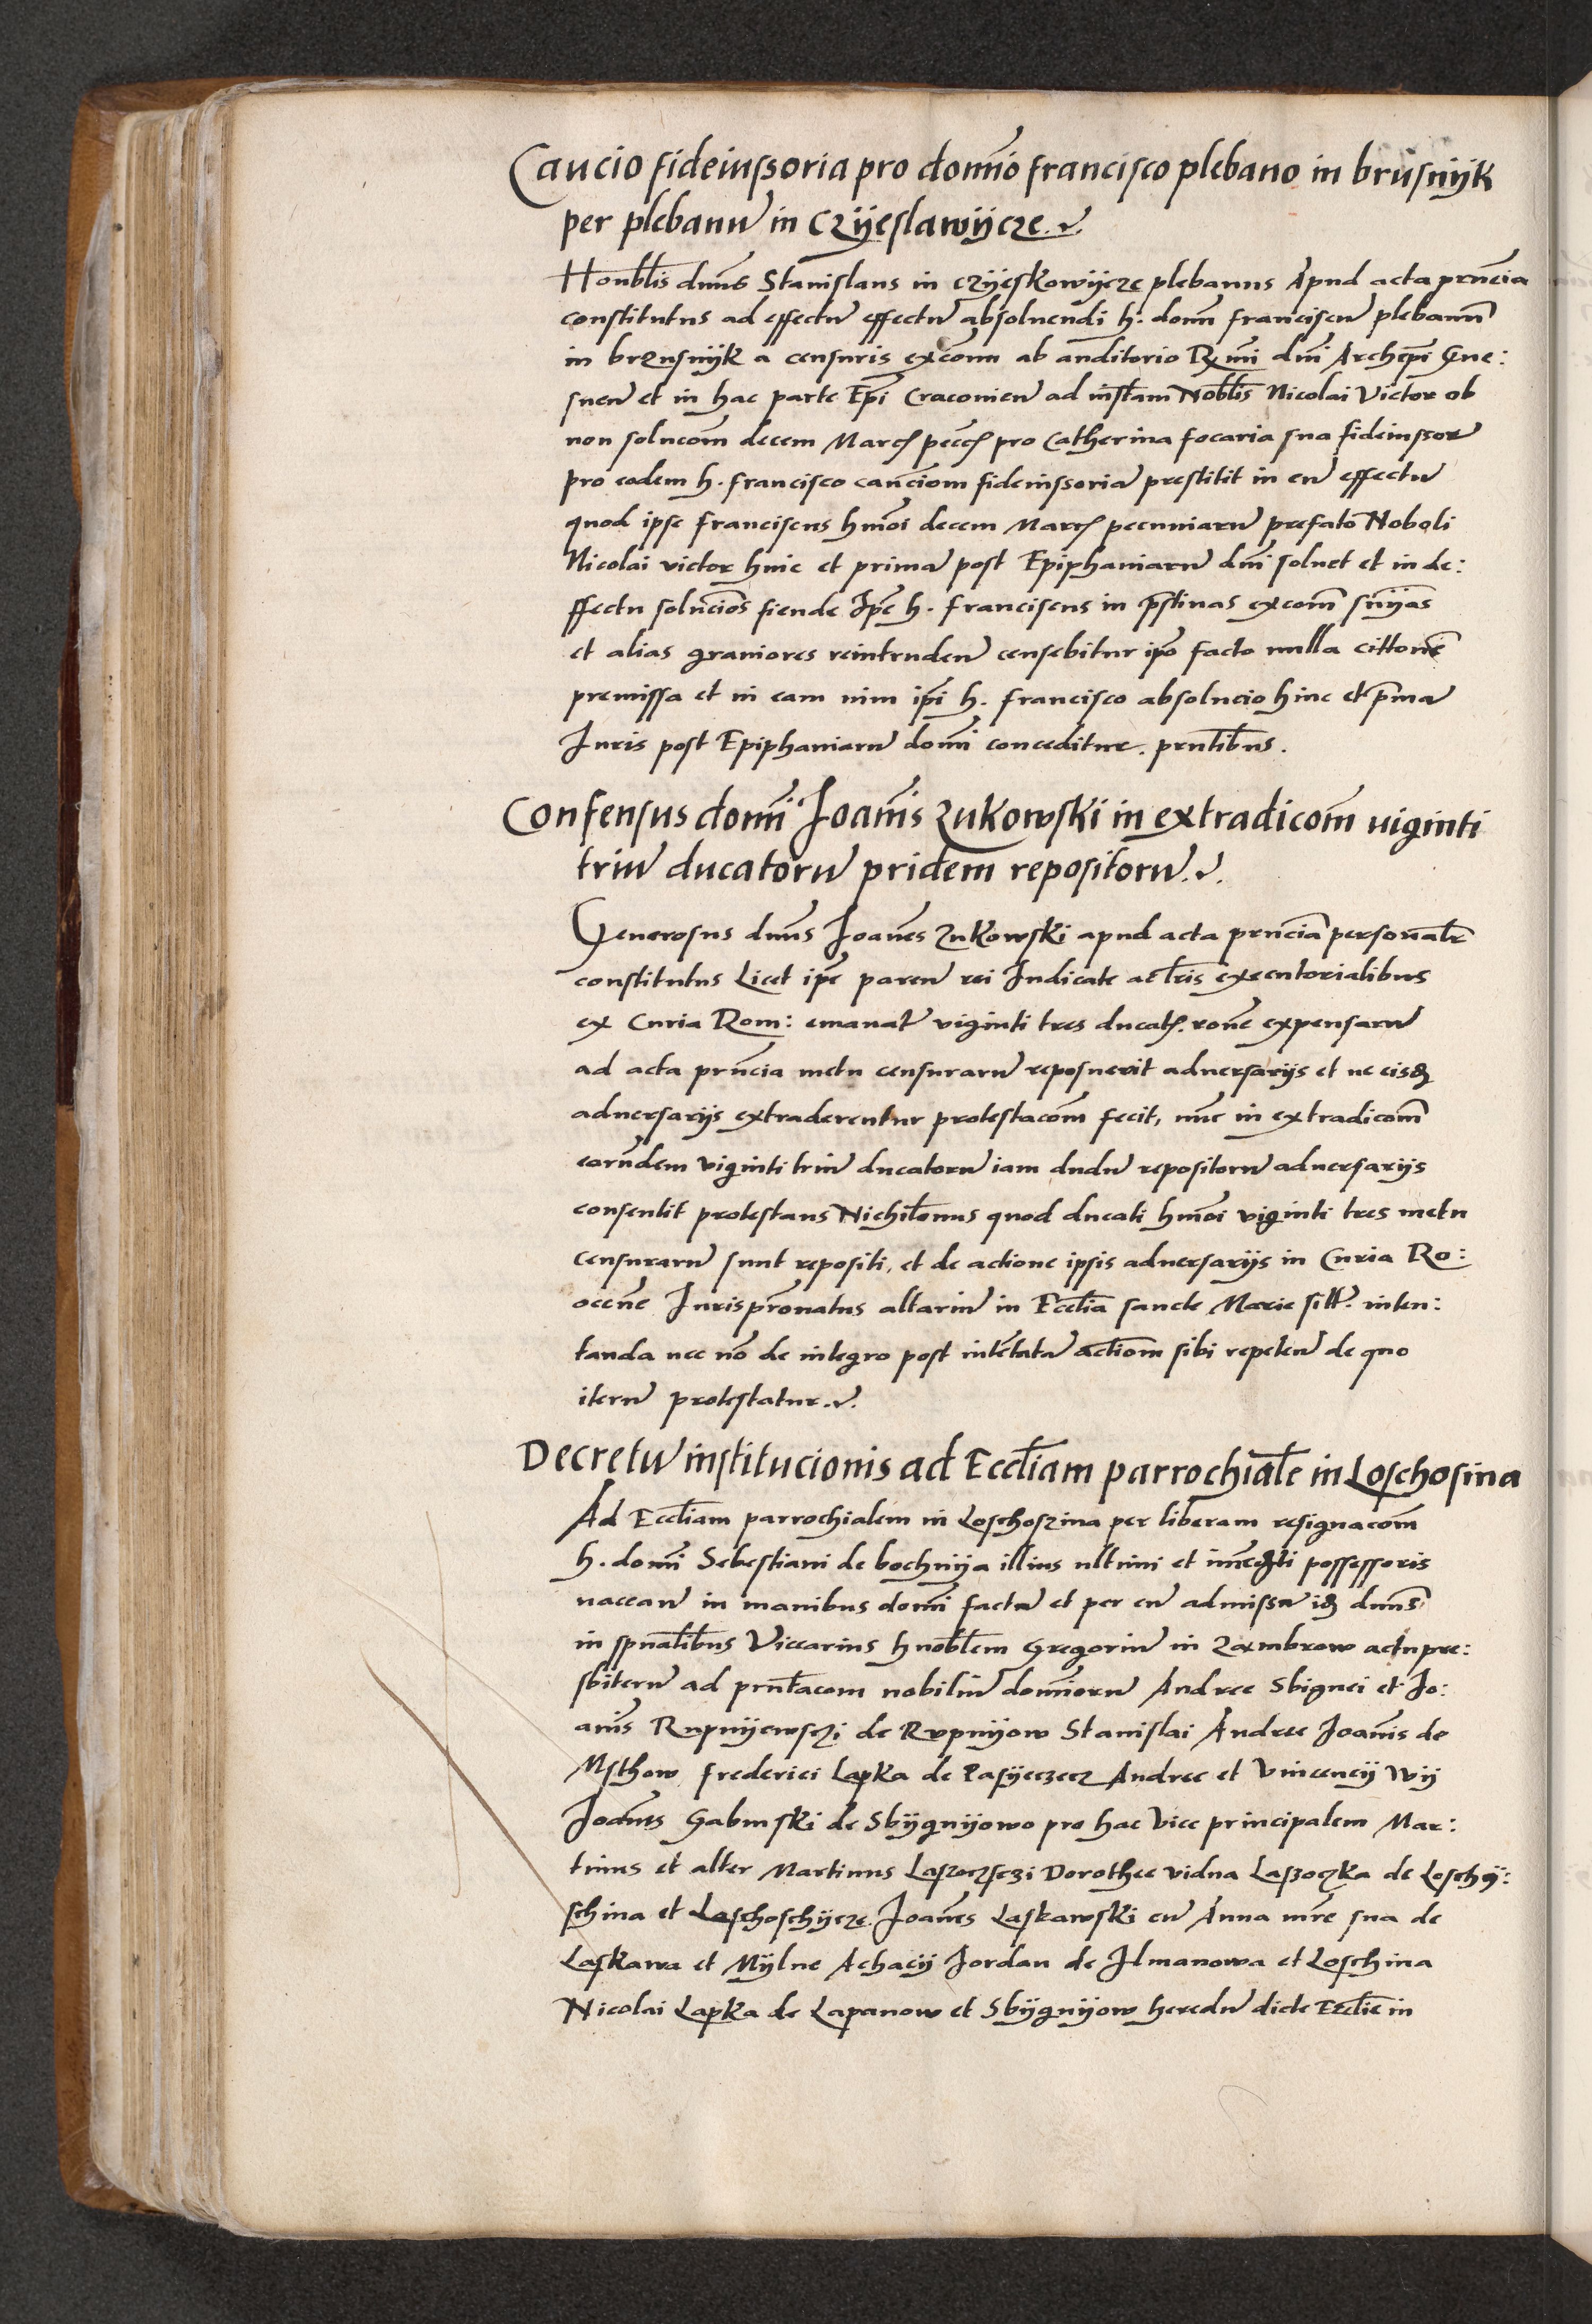 Caucio fideiussoria pro dom̄o francisco plebano in brusnijk
per plebanū in Czijeslawijcze
Honōblis dn̄us Stanislaus in czijeskowijcze plebanus Apud acta pn̄cia
constitutus ad effectū effectū absoluendi h. domn̄ franciscū plebanum̄
in brzusnijk a censuris excōm ab auditorio R mi dn̄i Archiep̄i Gne:
snen̄ et in hac parte Ep̄i Cracouien̄ ad inst̄am Nob̄lis Nicolai Victor ob
non soluc̄om decem Marc̄ pecc̄ pro Catherina focaria sua fideiussor̄
pro eodem h. francisco cauc̄iom fideiussoriā prestitit in eū effectū
quod ipse franciscus hm̄oi decem Marc̄ pecuniarū prefato Nobili
Nicolai victor hinc et primā post Epiphaniarū dn̄i soluet et in de:
ffectu soluc̄ios fiende Ip̄e h. franciscus in p̄stinas excom̄ sn̄ijas
et alias grauiores reintruden̄ censebitur ip̄o facto nulla cittone
premissa et in eam uim ip̄i h. francisco absolucio hinc et p̄mā
Iuris post Epiphaniarū domī conceditur. pn̄tibus.
Consensus domī Joan̄is Zukowski in extradic̄om uiginti
triū ducatorū pridem repositorū
Generosus dn̄us Joan̄es Zukowski apud acta pn̄cia personalr̄
constitutus Licet ip̄e paren̄ rei Iudicate ac lr̄is executorialibus
ex Curia Rom: emanat̄ viginti tres ducat̄. ron̄e expensarū
ad acta pn̄cia metu censurarū reposuerit aduersarijs et ne eisdē
aduersarijs extraderentur protestac̄om fecit, nun̄c in extradic̄om
eorūdem viginti triū ducatorū iam dudū repositorū aduersarijs
consentit protestans Nichilomus quod ducati hm̄oi viginti tres metu
censurarū sunt repositi, et de actione ipsis aduersarijs in Curia Ro:
occ̄ne Iurisp̄ronatus altariū in Eccl̄ia sancte Marie sitt̄. inten:
tanda nec no̅ de integro post intētatā actiom̄ sibi repeten̄ de quo
iterū protestatur
Decretū institucionis ad Eccl̄iam parrochialē in Loschosina
Ad Eccl̄iam parrochialem in Loschoszina per liberam resignac̄om
h. domī Sebestiani de bochnija illius ultimi et im̄ed̄ti possessoris
uacean̄ in manibus domī factā et per eū admissā id̄ dn̄us
in sp̄ualibus Viccarius hnob̄lem Gregoriū in Zambrow actu pre:
sbiterū ad pn̄tac̄om nobiliū domiorū Andree Sbignei et Jo:
an̄is Rupnijewsczi de Rupnijow Stanislai Andree Joan̄is de
Msthow frederici Lapka de Pasijeczecz Andree et Vincencij Wij
Joan̄is Gabinski de Sbijgnijowo pro hac Vice principalem Mar:
tinus et alter Martinus Laszoczsczi Dorothee vidua Laszoczka de Loschÿ:
schina et Laschoschijcze. Joan̄es Laskawski cū Anna mr̄e sua de
Laskawa et Mijlne Achacij Jordan de Ilmanowa et Loschina
Nicolai Lapka de Lapanow et Sbijgnijow heredū dicte Eccl̄ie in